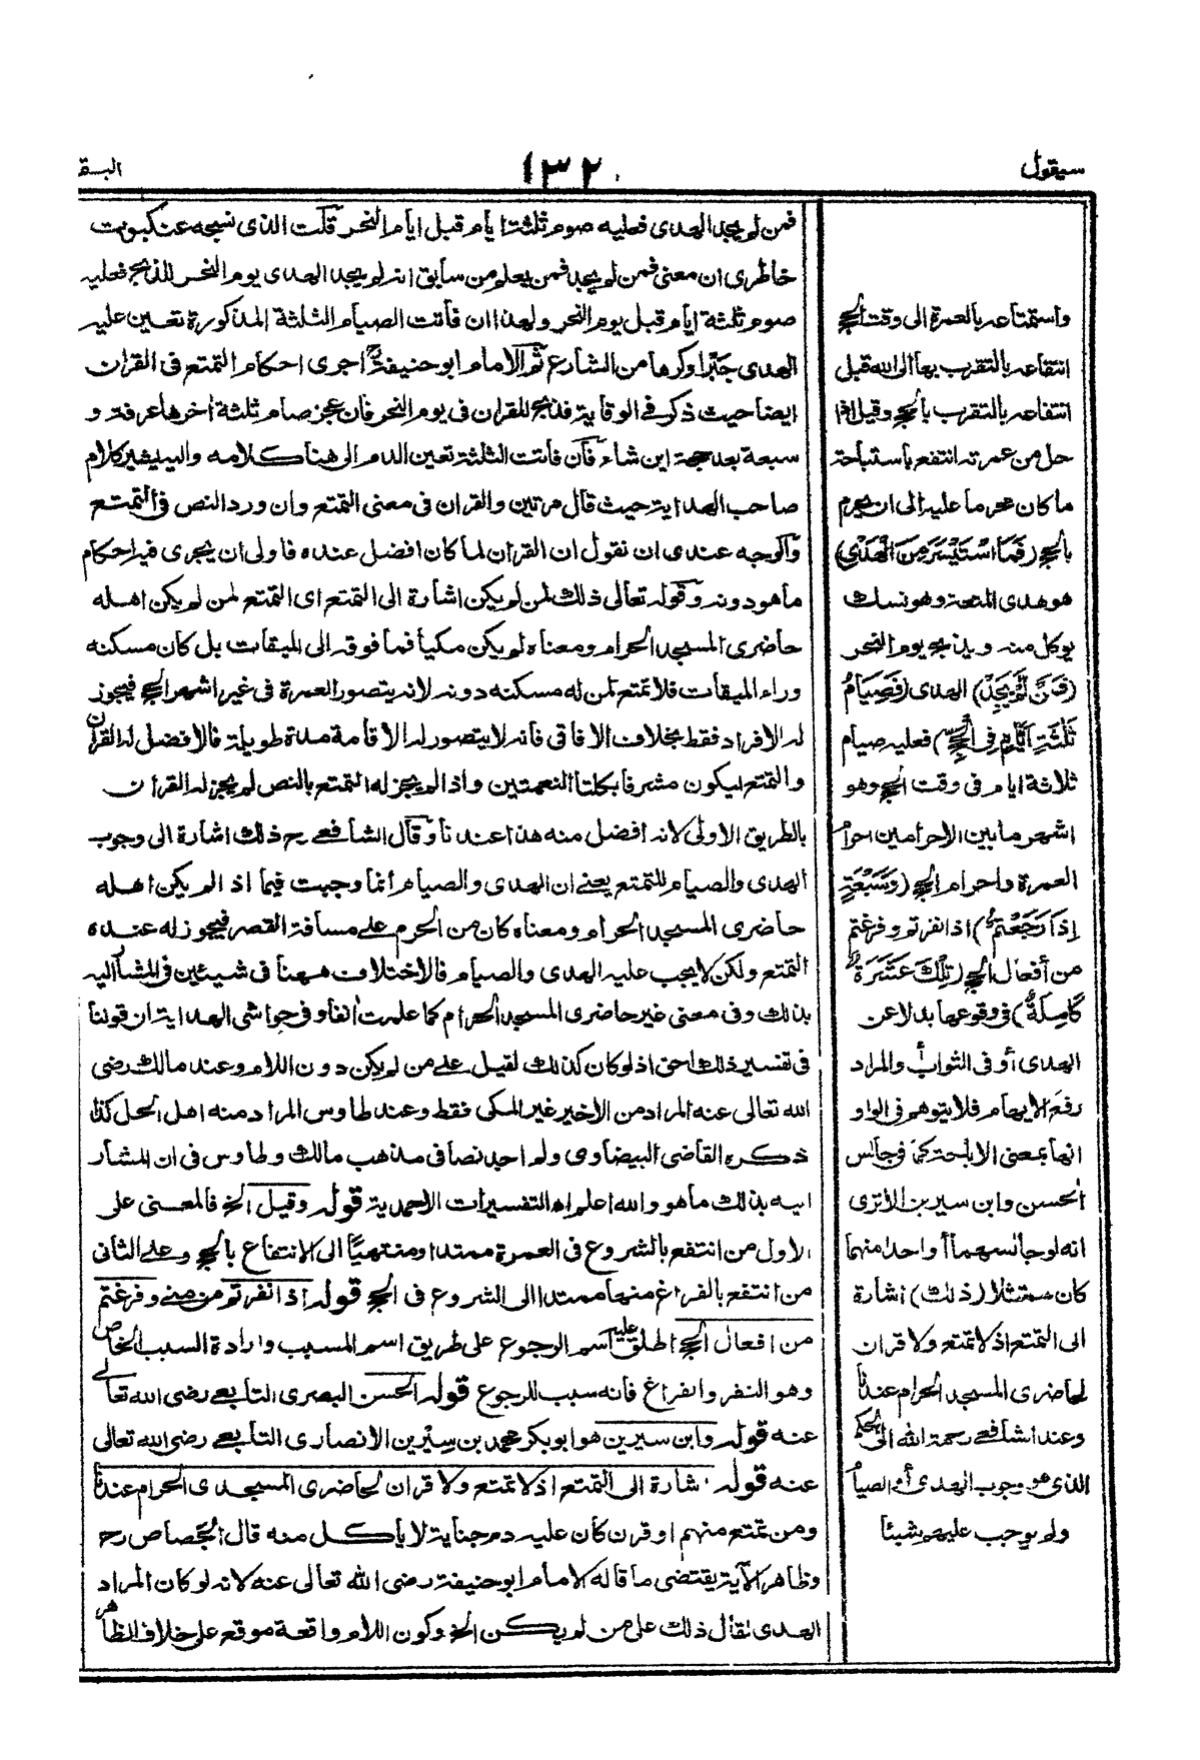 سيقول
١٣٢
البقـ
واستمتاعه بالعمرة الى وقت الحج
انتفاعه بالتقرب بها الى الله قبل
انتفاعه بالتقرب بالحج وقيل اذا
حل من عمرته انتفع باستباحة
ما كان محرما عليه الى ان يحرم
بالحج (فَمَا اسْتَيْسَرَ مِنَ الْهَدْيِ)
هو هدى المتعة وهو نسك
يوكل منه ويذبح يوم النحر
(فَمَنْ لَّمْ يَجِدْ) الهدى (فَصِيَامُ
ثَلٰثَةِ اَيَّامٍ فِى الْحَجِّ) فعليه صيام
ثلاثة ايام فى وقت الحج وهو
اشهر ما بين الاحرامين احرام
العمرة واحرام الحج (وَسَبْعَةٍ
اِذَا رَجَعْتُمْ) اذا نفرتم وفرغتم
من أفعال الحج (تِلْكَ عَشَرَةٌ
كَامِلَةٌ) فى وقوعها بدلا عن
الهدى أو فى الثواب والمراد
رفع الابهام فلا يتوهم فى الواو
انها بمعنى الاباحة كما فى جالس
الحسن وابن سيرين الا ترى
انه لو جالسهما أو احدا منهما
كان ممتثلا (ذٰلك) اشارة
الى التمتع اذ لا تمتع ولا قران
لحاضرى المسجد الحرام عندنا
وعند الشافعى رحمة الله الى الحكم
الذى هو وجوب الهدى أو الصيام
ولم يوجب عليهم شيئا
فمن لم يجد الهدى فعليه صوم ثلثة ايام قبل ايام النحر قلت الذى نسجه عنكبوت
خاطرى ان معنى فمن لم يجد فمن يعلم من سابق انه لم يجد الهدى يوم النحر للذبح فعليه
صوم ثلثة ايام قبل يوم النحر ولهذا ان فاتت الصيام الثلثة المذكورة تعين عليه
الهدى جبرا وكرها من الشارع ثم الامام ابو حنيفة رح اجرى احكام التمتع فى القران
ايضا حيث ذكر فى الوقاية فذبح للقران فى يوم النحر فان عجز صام ثلثة اخرها عرفة و
سبعة بعد حجة اين شاء فان فاتت الثلثة تعين الدم الى هنا كلامه واليه يشير كلام
صاحب الهداية حيث قال مرتين والقران فى معنى التمتع وان ورد النص فى التمتع
والوجه عندى ان نقول ان القران لما كان افضل عنده فاولى ان يجرى فيه احكام
ما هو دونه وقوله تعالى ذلك لمن لم يكن اشارة الى التمتع اى التمتع لمن لم يكن اهله
حاضرى المسجد الحرام ومعناه لم يكن مكيا فما فوقه الى الميقات بل كان مسكنه
وراء الميقات فلا تمتع لمن له مسكنه دونه لانه يتصور العمرة فى غير اشهر الحج فيجوز
له الافراد فقط بخلاف الافاقى فانه لا يتصور له الاقامة مدة طويلة فالافضل له القران
والتمتع ليكون مشرفا بكلتا النعمتين واذا لم يجز له التمتع بالنص لم يجز له القران
بالطريق الاولى لانه افضل منه هذا عندنا وقال الشافعى رح ذلك اشارة الى وجوب
الهدى والصيام للتمتع يعنى ان الهدى والصيام انما وجبت فيما اذ الم يكن اهله
حاضرى المسجد الحرام ومعناه كان من الحرم على مسافة القصر فيجوز له عنده
التمتع ولكن لا يجب عليه الهدى والصيام فالاختلاف ههنا فى شيئين فى المشار اليه
بذلك وفى معنى غير حاضرى المسجد الحرام كما علمت انفا وفى حواشى الهداية ان قولنا
فى تفسير ذلك احق اذ لو كان كذلك لقيل على من لم يكن دون اللام وعند مالك رضى
الله تعالى عنه المراد من الاخير غير المكى فقط وعند طاوس المراد منه اهل الحل كذا
ذكره القاضى البيضاوى ولم اجد نصا فى مذهب مالك وطاوس فى ان المشار
اليه بذلك ما هو والله اعلم اه التفسيرات الاحمدية قوله وقيل الخ فالمعنى على
الاول من انتفع بالشروع فى العمرة ممتدا ومنتهيا الى الانتفاع بالحج وعلى الثانى
من انتفع بالفراغ منها ممتدا الى الشروع فى الحج قوله اذا نفرتم من منى وفرغتم
من افعال الحج اطلق عليه اسم الرجوع على طريق اسم المسبب وارادة السبب الخاص
وهو النفر والفراغ فانه سبب للرجوع قوله الحسن البصرى التابعى رضى الله تعالى
عنه قوله وابن سيرين هو ابو بكر محمد بن سيرين الانصارى التابعى رضى الله تعالى
عنه قوله اشارة الى التمتع اذ لا تمتع ولا قران لحاضرى المسجد الحرام عندنا
ومن تمتع منهم او قرن كان عليه دم جناية لا يأكل منه قال الجصاص رح
وظاهر الآية يقتضى ما قاله الامام ابو حنيفة رضى الله تعالى عنه لانه لو كان المراد
الهدى لقال ذلك على من لم يكن الخ وكون اللام واقعة موقع على خلاف الظاهر